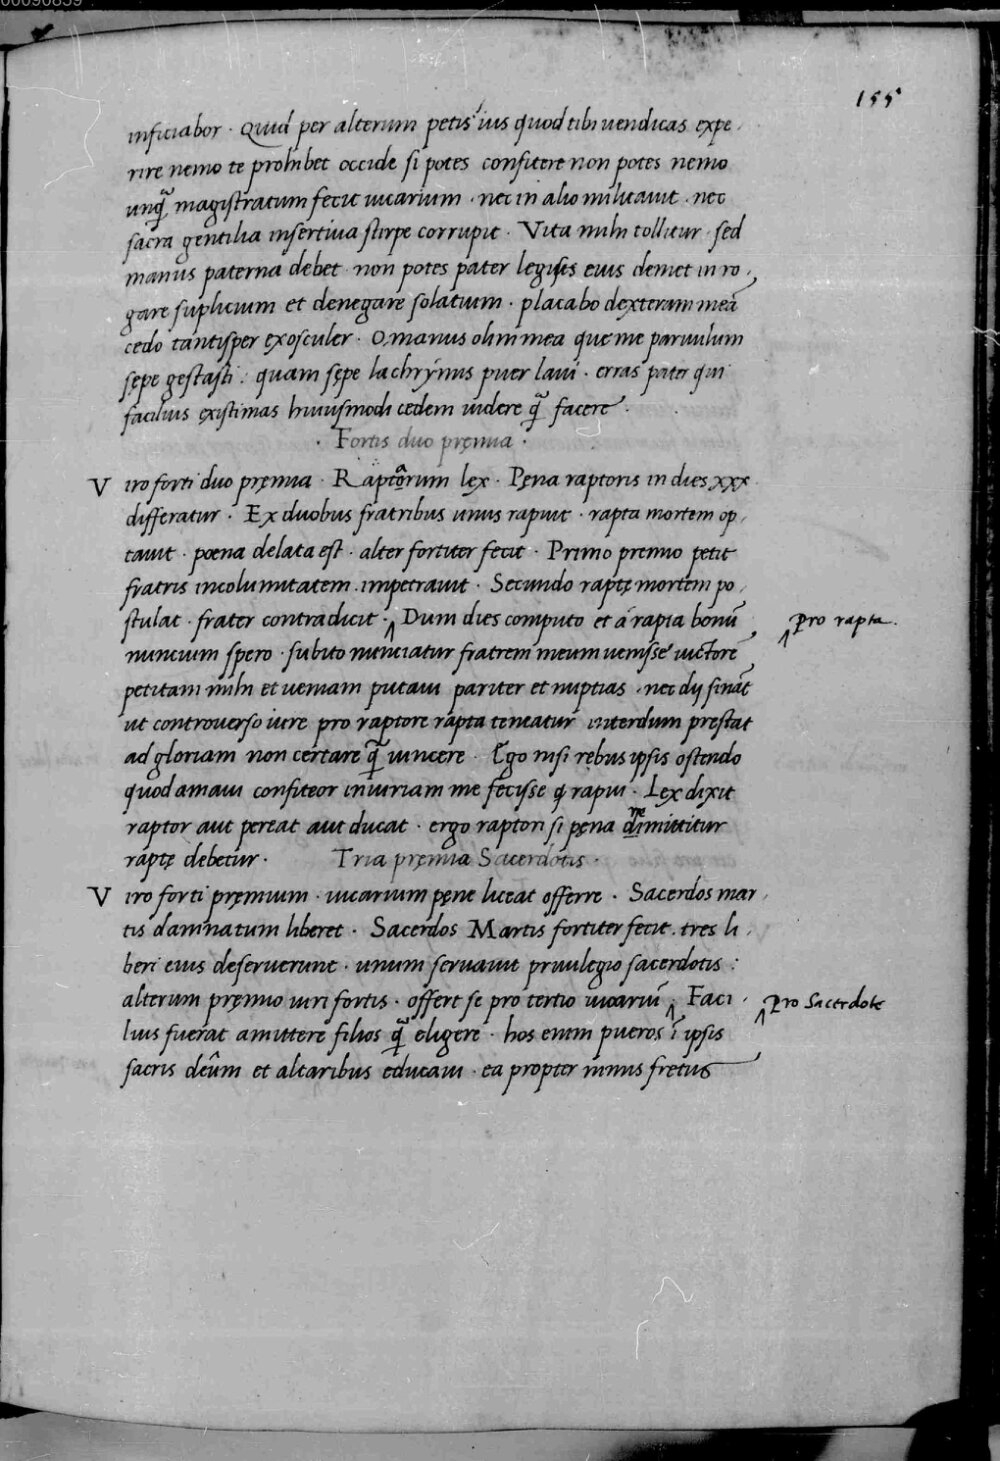 00090839
155
inficiabor · Quid per alterum petis ius quod tibi uendicas expe,
rire nemo te prohibet occide si potes confitere non potes nemo
unq̃ magistratum fecit uicarium · nec in alio militauit · nec
sacra gentilia insertiua stirpe corrupit · Vita mihi tollitur · sed
manus paterna debet · non potes pater legis eius demet in ro,
gare suplicium et denegare solatium · placabo dexteram meã
cedo tantisper exosculer · O manus olim mea que me paruulum
sępe gestasti : quam sępe lachrýmis puer laui · erras pater qui
facilius existimas huiusmodi cedem uidere q̃ facere ·
· Fortis duo pręmia ·
Viro forti duo pręmia · Raptorum lex · Pęna raptoris in dies xxx
differatur · Ex duobus fratribus unus rapuit · rapta mortem op,
tauit · poena delata est · alter fortiter fecit · Primo premio petit
fratris incolumitatem · impetrauit · Secundo raptę mortem po,
stulat · frater contradicit · ‸ Dum dies computo et á rapta bonũ
‸ pro rapta.
nuncium spero · subito nunciatur fratrem meum uenisse uictorẽ
petitam mihi et ueniam putaui pariter et nuptias · nec dij sinãt
ut controuerso iure pro raptore rapta teneatur interdum prestat
ad gloriam non certare q̃ uincere · Ego nisi rebus ipsis ostendo
quod amaui confiteor iniuriam me fecisse q rapui · Lex dixit
raptor aut pereat aut ducat · ergo raptori si pęna dimittitur
raptę debetur · Tria pręmia Sacerdotis ·
Viro forti pręmium · uicarium pęne liceat offerre · Sacerdos mar,
tis damnatum liberet · Sacerdos Martis fortiter fecit · tres li,
beri eius deseruerunt · unum seruauit priuilegio sacerdotis :
alterum pręmio uiri fortis · offert se pro tertio uicariũ ‸ Faci,
‸ Pro Sacerdote
lius fuerat amittere filios q̃ eligere · hos enim pueros ĩ ipsis
sacris deûm et altaribus educaui · ea propter minus fretus